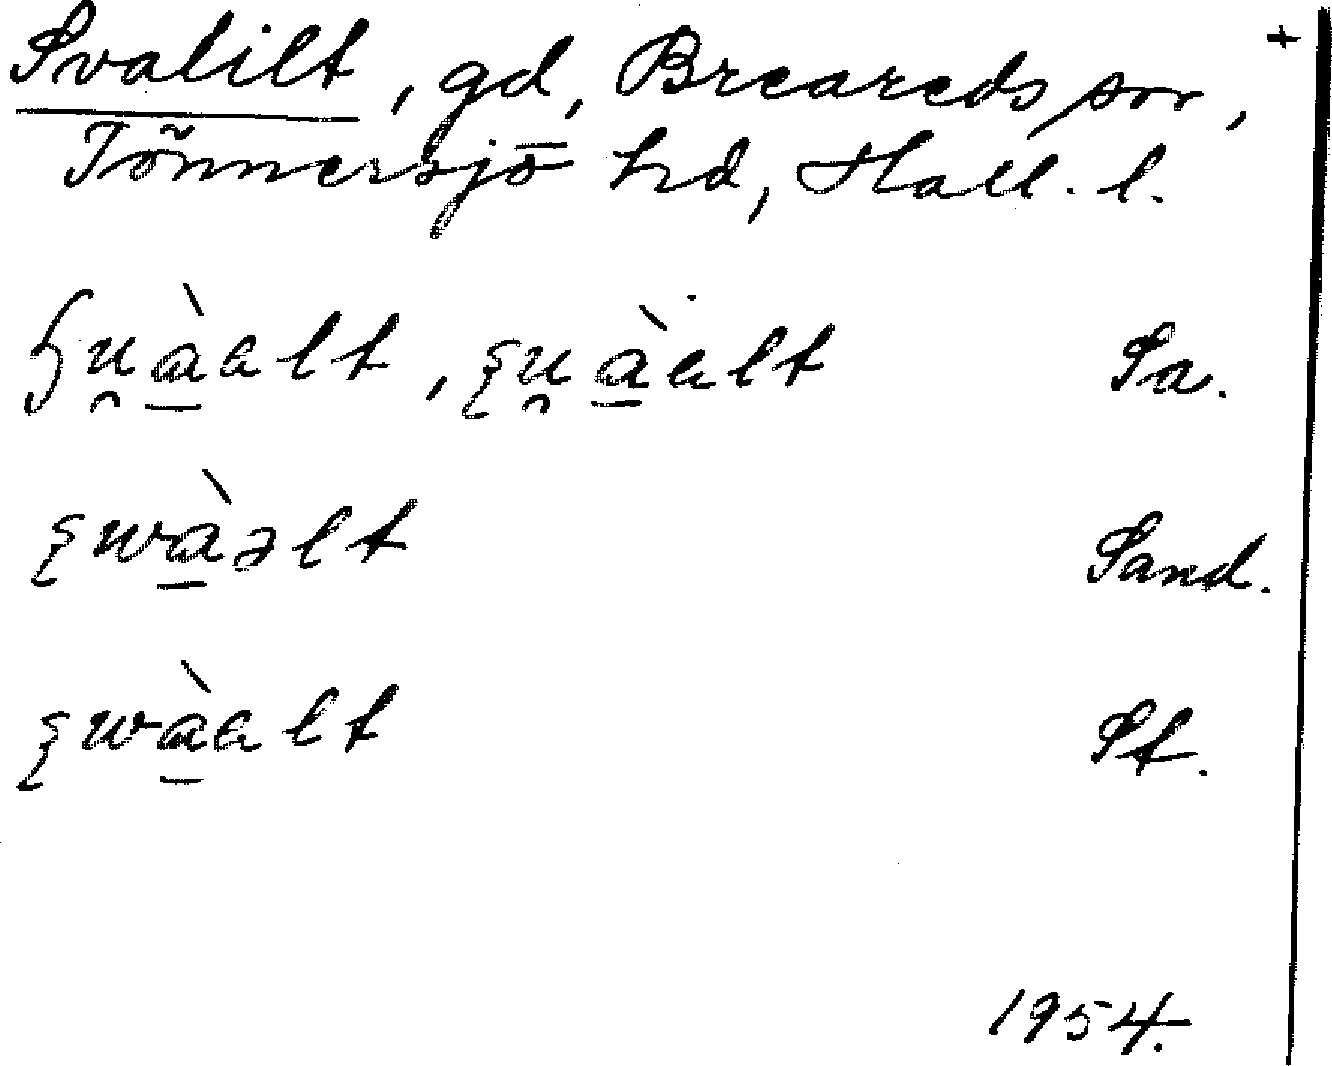 Svalilt, gd, Breareds sn, +
Tönnersjö hd, Hall. l.
ɧu̯à̱alt, ʂu̯à̱alt Sa.
ʂwà̱əlt Sand.
ʂwà̱alt St.
1954.